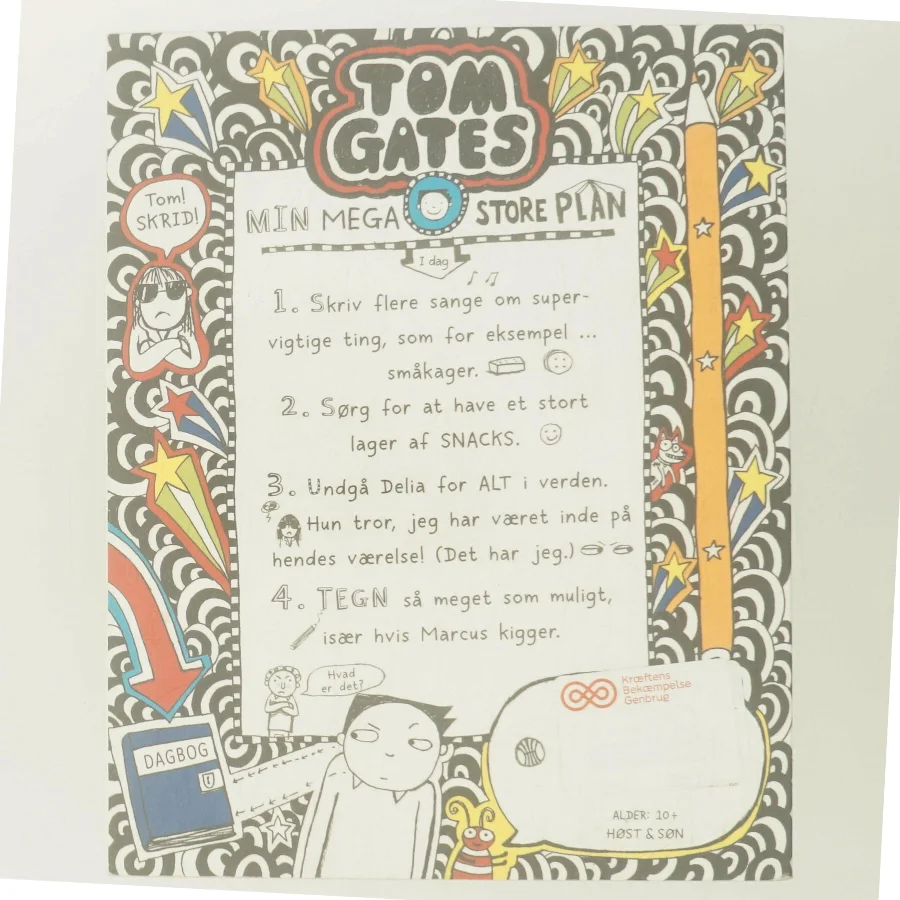 TOM
GATES
MIN MEGA STORE PLAN
I dag
Tom!
SKRID!
1. Skriv flere sange om super-
vigtige ting, som for eksempel ...
småkager.
2. Sørg for at have et stort
lager af SNACKS.
3. Undgå Delia for ALT i verden.
Hun tror, jeg har været inde på
hendes værelse! (Det har jeg.)
4. TEGN så meget som muligt,
især hvis Marcus kigger.
Hvad
er det?
DAGBOG
Kræftens
Bekæmpelse
Genbrug
ALDER: 10+
HØST & SØN